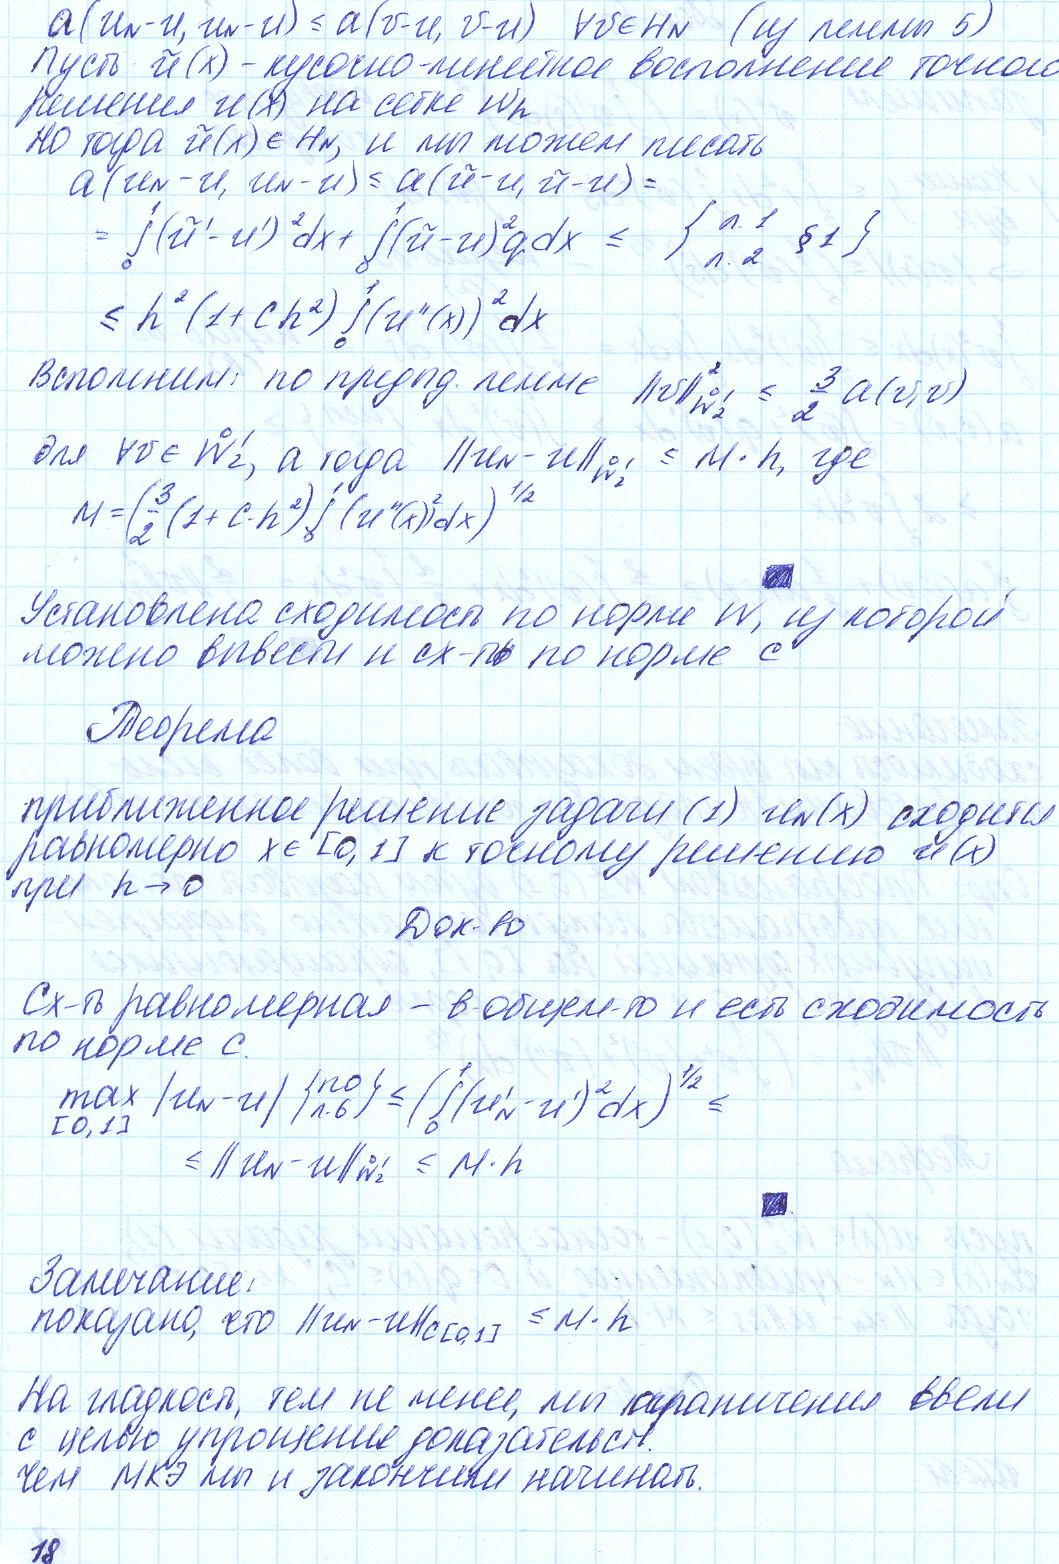 a(u_N-u, u_N-u) ≤ a(v-u, v-u) ∀v∈H_N (из леммы 5)
Пусть ũ(x) - кусочно-линейное восполнение точного
решения u(x) на сетке W_h
Но тогда ũ(x) ∈ H_N, и мы можем писать
a(u_N-u, u_N-u) ≤ a(ũ-u, ũ-u) =
= ∫₀¹(ũ'-u')²dx + ∫₀¹(ũ-u)²q dx ≤ {л.1 л.2 §1}
≤ h²(1+Ch²) ∫₀¹(u''(x))²dx
Вспомним: по предыд. лемме ||v||²_{W̊₂¹} ≤ 3/2 a(v,v)
для ∀v∈W̊₂¹, а тогда ||u_N-u||_{W̊₂¹} ≤ M·h, где
M = (3/2 (1+C·h²) ∫₀¹(u''(x))²dx)^{1/2}
Установлена сходимость по норме W, из которой
можно вывести и сх-ть по норме C
Теорема
приближенное решение задачи (1) u_N(x) сходится
равномерно x∈[0,1] к точному решению u(x)
при h→0
Док-во
Сх-ть равномерная - в общем-то и есть сходимость
по норме C.
max_{[0,1]} |u_N-u| {по л.6} ≤ (∫₀¹(u'_N-u')²dx)^{1/2} ≤
≤ ||u_N-u||_{W̊₂¹} ≤ M·h
Замечание:
показано, что ||u_N-u||_{C[0,1]} ≤ M·h
На гладкость, тем не менее, мы ограничения ввели
с целью упрощение доказательств.
Чем МКЭ мы и закончили начинать.
18